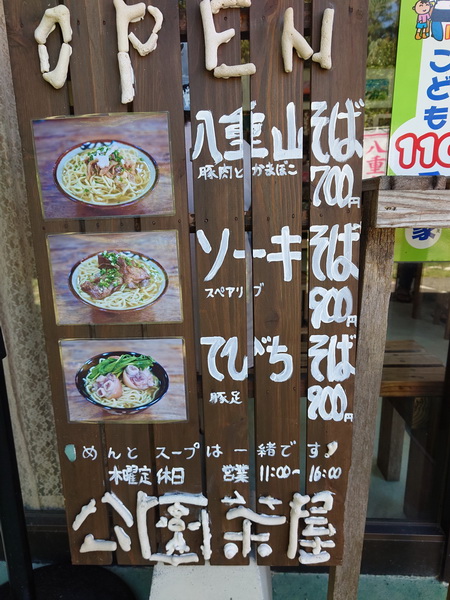 OPEN
八重山そば
豚肉とかまぼこ
700円
ソーキそば
スペアリブ
900円
てびちそば
豚足
900円
めんとスープは一緒です!
木曜定休日 営業 11:00~16:00
公園茶屋
こども
110
八重
家